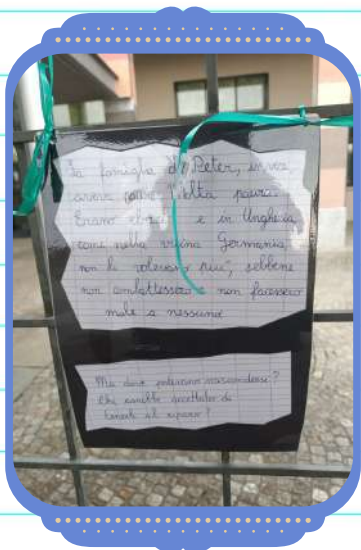 La famiglia di Peter, invece,
aveva molta paura.
Erano ebrei e in Ungheria,
come nella vicina Germania,
non li volevano più, sebbene
non combattessero e non facessero
male a nessuno
Ma dove potevano nascondersi?
Chi sarebbe accettato di
tenerli al riparo?